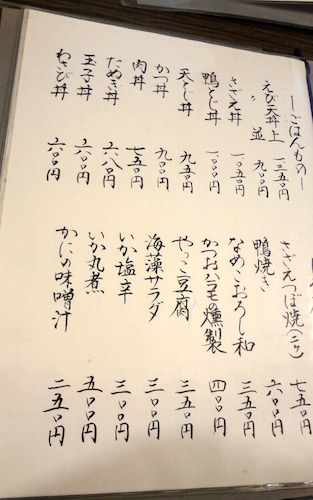 ーごはんものー
えび天丼 上 一、三五〇円
並 九〇〇円
さざえ丼 一、〇五〇円
鴨とじ丼 一、〇〇〇円
天とじ丼 九五〇円
かつ丼 九〇〇円
肉丼 七五〇円
たぬき丼 六八〇円
玉子丼 六〇〇円
わさび丼 六〇〇円
さざえつぼ焼(二ケ) 七五〇円
鴨焼き 六〇〇円
なめこおろし和 三五〇円
かつおハラモの燻製 四〇〇円
やっこ豆腐 三五〇円
海藻サラダ 三〇〇円
いか塩辛 三〇〇円
いか丸煮 五〇〇円
かにの味噌汁 二五〇円